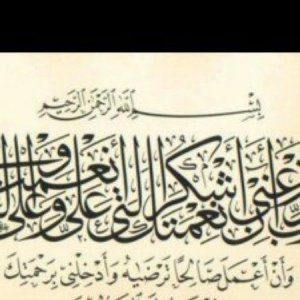 بِسْمِ اللَّهِ الرَّحْمَٰنِ الرَّحِيمِ
أَوْزِعْنِي أَنْ أَشْكُرَ نِعْمَتَكَ الَّتِي أَنْعَمْتَ عَلَيَّ وَعَلَىٰ
وَأَنْ أَعْمَلَ صَالِحًا تَرْضَاهُ وَأَدْخِلْنِي بِرَحْمَتِكَ